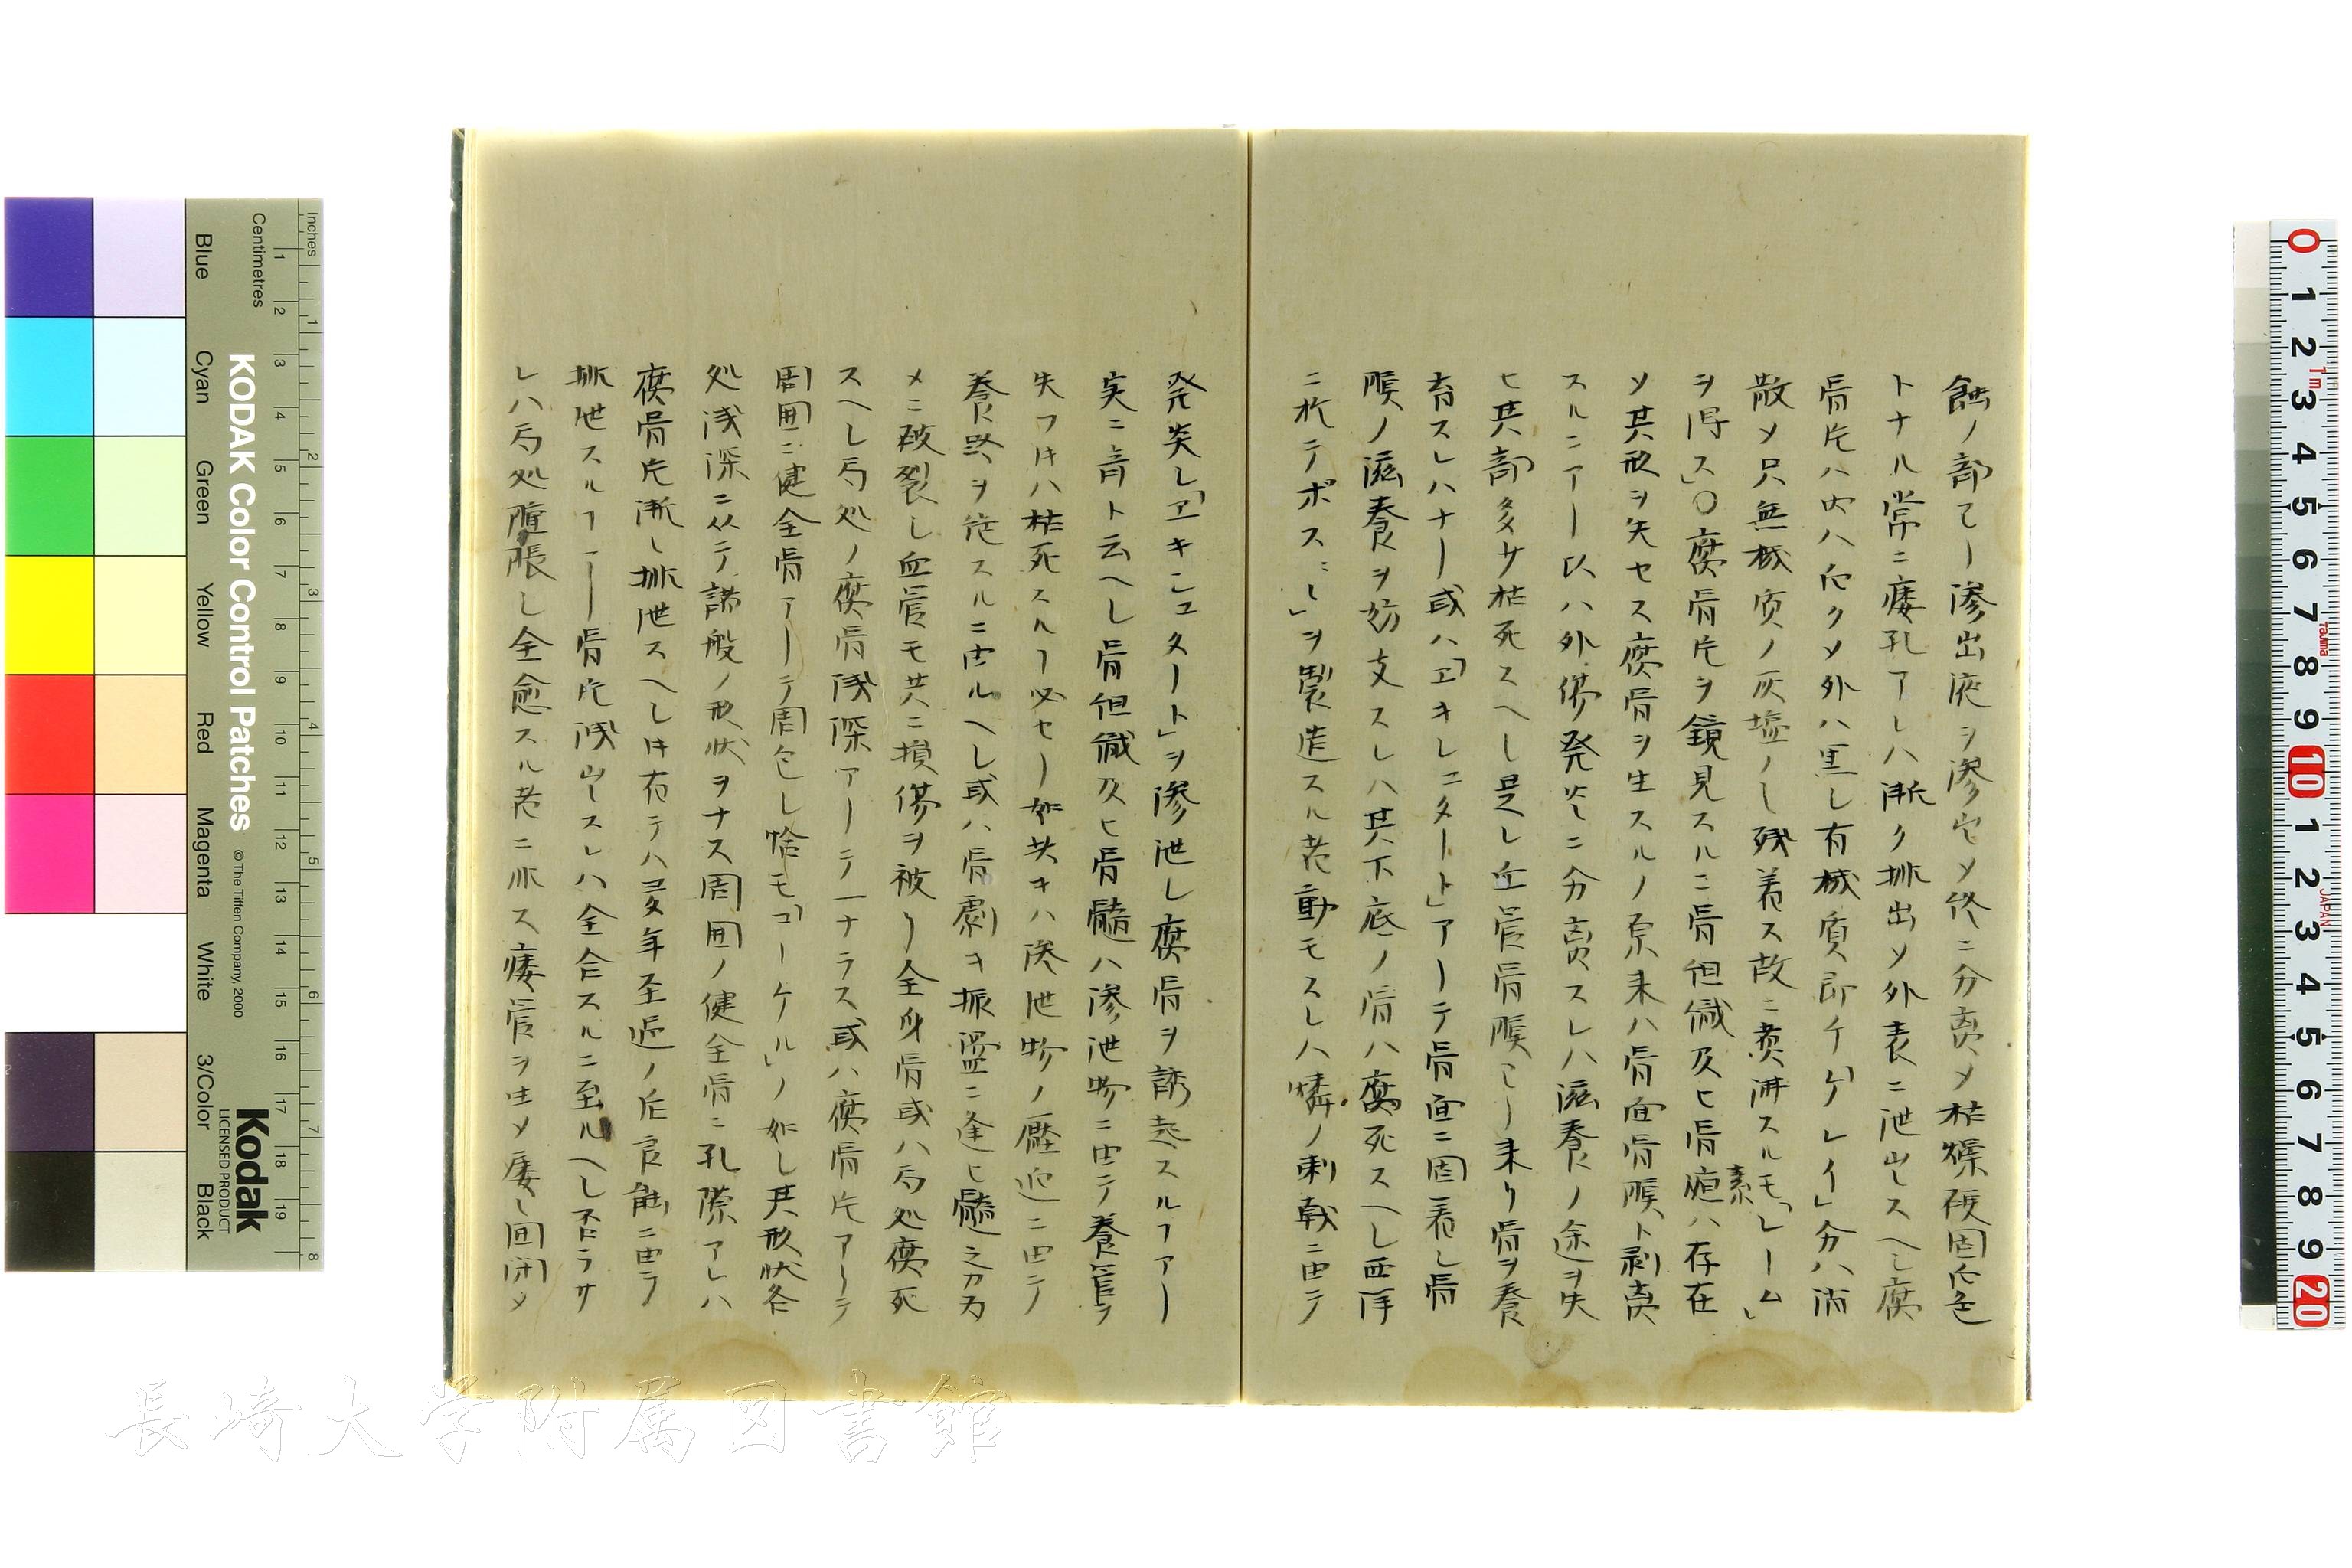 蝕ノ部ヨリ滲出液ヲ滲出メ終ニ分离メ枯燥硬固白色
トナル常ニ瘻孔アレハ漸ク排出メ外表ニ泄出スヘシ腐
骨片ハ内ハ白クメ外ハ黒シ有機質即チ「ゲレイ」分ハ消
散メ只無機質ノ灰塩ノミ残着ス故ニ煮沸スルモ「レーム」素
ヲ得ス」〇腐骨片ヲ鏡見スルニ骨但織及ヒ骨疽ハ存在
メ其形ヲ失セス腐骨ヲ生スルノ原来ハ骨面骨膜ト剥离
スルニアリ以ハ外傷発炎ニ分离スレハ滋養ノ途ヲ失
ヒ其部多サ枯死スヘシ是レ血管骨膜ヨリ来リ骨ヲ養
育スレハナリ或ハ「ヱキシュタート」アリテ骨面ニ固着シ骨
膜ノ滋養ヲ妨支スレハ其下底ノ骨ハ腐死スヘシ西洋
ニ於テポスニし」ヲ製造スル者動モスレハ燐ノ刺戟ニ由テ
発炎シ「ヱキシュタート」ヲ滲泄シ腐骨ヲ誘起スルヿアリ
実ニ育ト云ヘシ骨但織及ヒ骨髄ハ滲泄物ニ由テ養管ヲ
失フ片ハ枯死スルヿ必セリ如其キハ滲泄物ノ壓迫ニ由テ
養路ヲ絶スルニ由ルヘシ或ハ骨劇キ振盪ニ逢ヒ髄之カ為
メニ破裂シ血管モ共ニ損傷ヲ被リ全身骨或ハ局処腐死
スヘシ局処ノ腐骨浅深アリテ一ナラス或ハ腐骨片アリテ
周囲ニ健全骨アリテ周包シ恰モ「コーケル」ノ如シ其形状各
処浅深ニ从テ諸般ノ形状ヲナス周囲ノ健全骨ニ孔隙アレハ
腐骨片漸ク排泄スヘシ片有テハ多年至遅ノ后良能ニ由テ
排泄スルヿアリ骨片浅出スレハ全合スルニ至ルヘシ否ラサ
レハ局処腫脹シ全愈スル者ニ非ス瘻管ヲ生メ屡々回閉メ
0 1 2 3 4 5 6 7 8 9 10 1 2 3 4 5 6 7 8 9 20
1m
Tajima
JAPAN
Inches
Centimetres
Blue Cyan Green Yellow Red Magenta White 3/Color Black
KODAK Color Control Patches
© The Tiffen Company, 2000
Kodak
LICENSED PRODUCT
長崎大学附属図書館